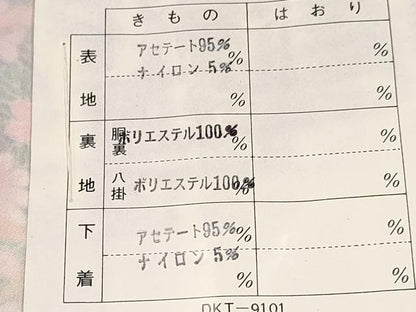 きもの はおり
表地 アセテート95% % %
ナイロン 5% % %
裏地 胴裏 ポリエステル100% % %
八掛 ポリエステル100% % %
下着 アセテート95% % %
ナイロン 5% % %
DKT-9101